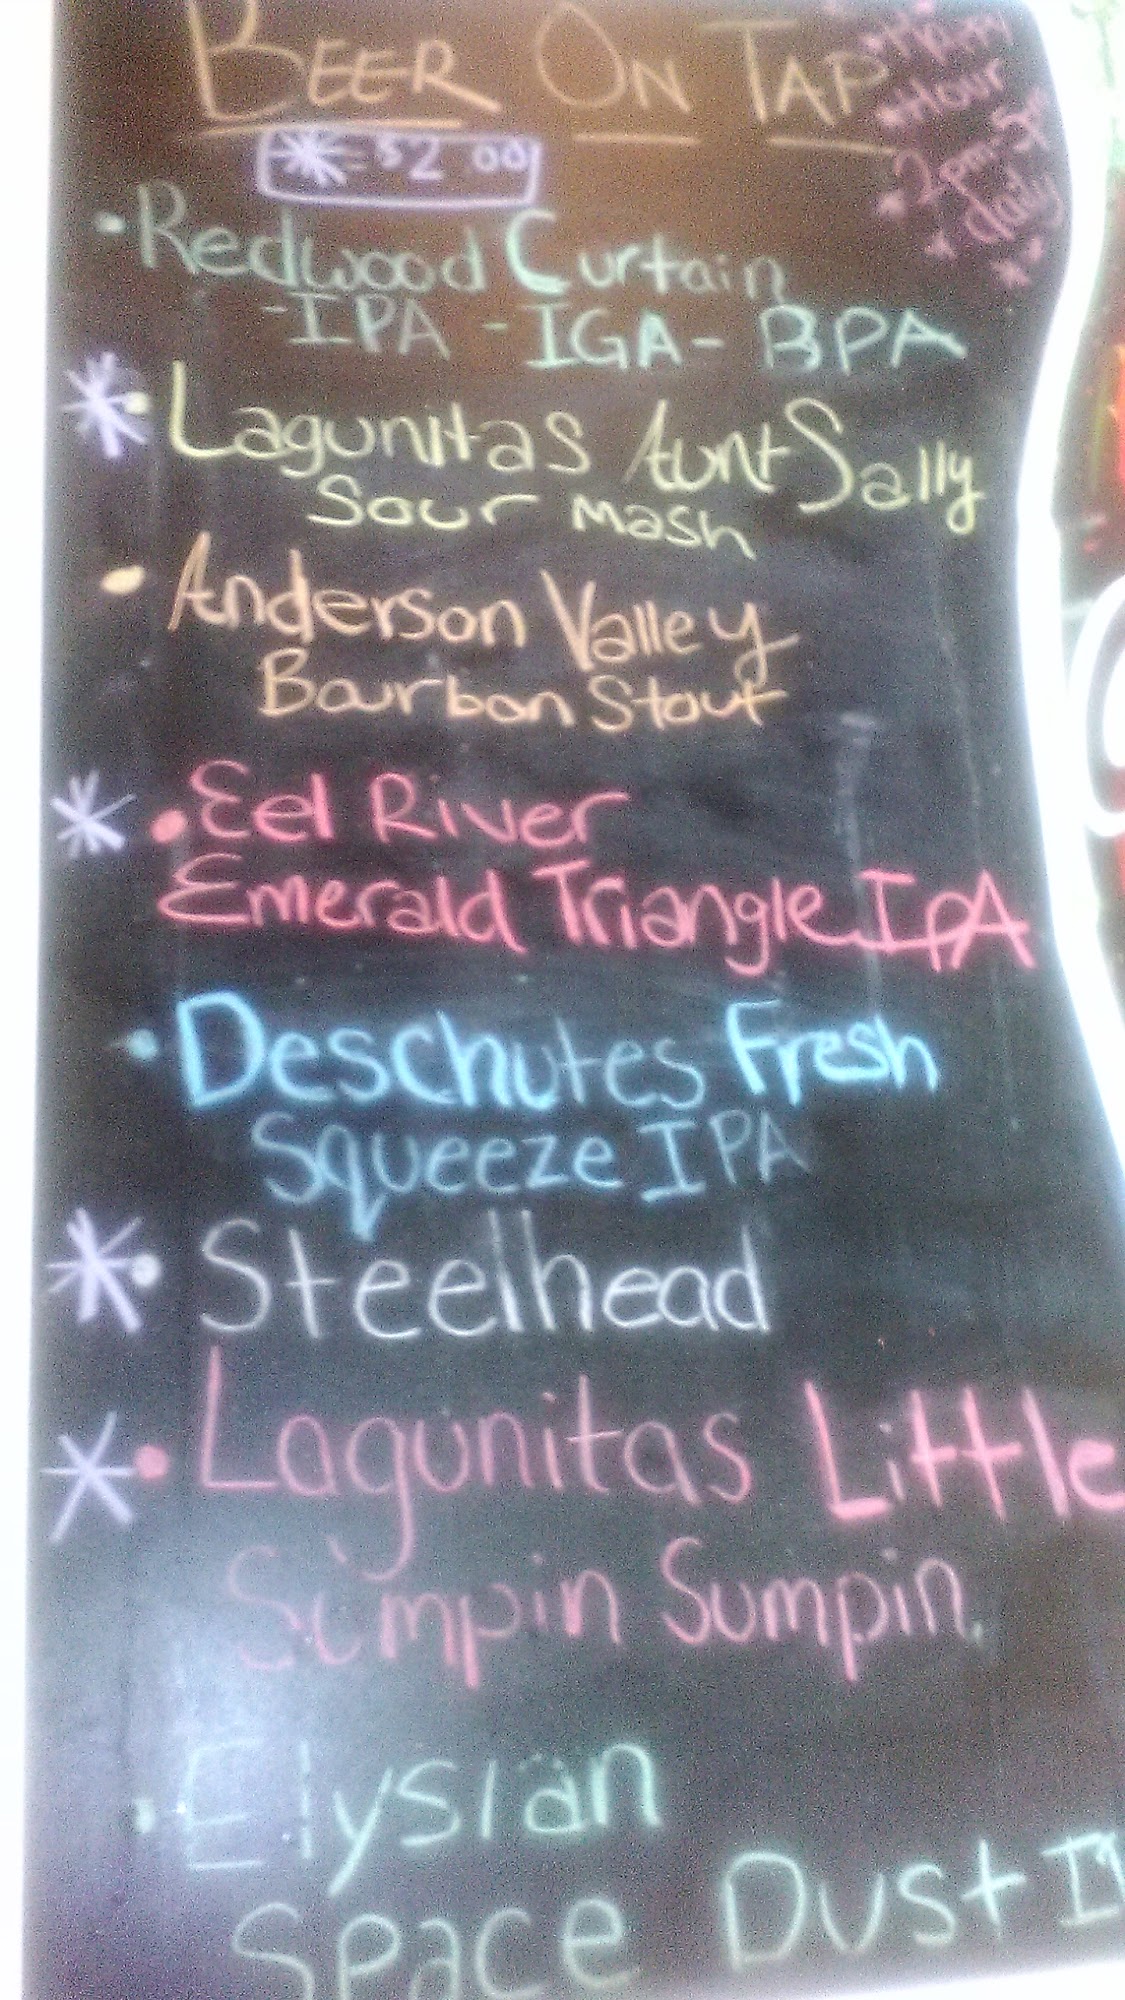 BEER ON TAP
* = $2.00
Happy
Hour
2pm-5pm
daily
• Redwood Curtain
-IPA -IGA- BPA
* • Lagunitas Aunt Sally
Sour mash
• Anderson Valley
Bourbon Stout
* • Eel River
Emerald Triangle IPA
• Deschutes Fresh
Squeeze IPA
* • Steelhead
* • Lagunitas Little
Sumpin Sumpin.
• Elysian
Space Dust